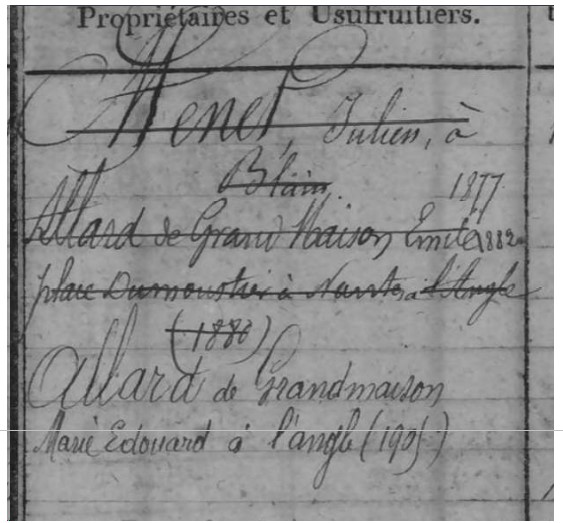 Propriétaires et Usufruitiers.
Menet, Julien, à
Blain. 1877
Allard de Grand Maison Emile 1882
place Dumoustier à Nantes, à l'Angle
(1886)
Allard de Grandmaison
Marie Edouard à l'angle (1905)